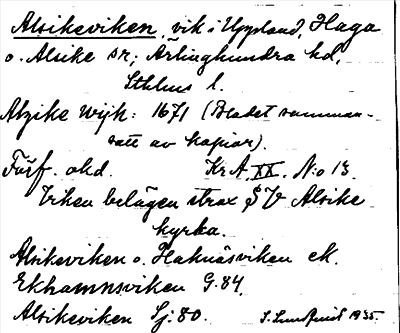 Alsikeviken, vik i Uppland, Haga
o. Alsike sr; Ärlinghundra hd,
Sthlms l.
Alzike wijk: 1671 (Bladet samman-
satt av kopior).
Förf. okd. Kr A. XX. N:o 13.
Viken belägen strax SV Alsike
kyrka.
Alsikeviken o. Haknäsviken ek.
Ekhamnsviken G.84.
Alsikeviken Sj:80. 1935